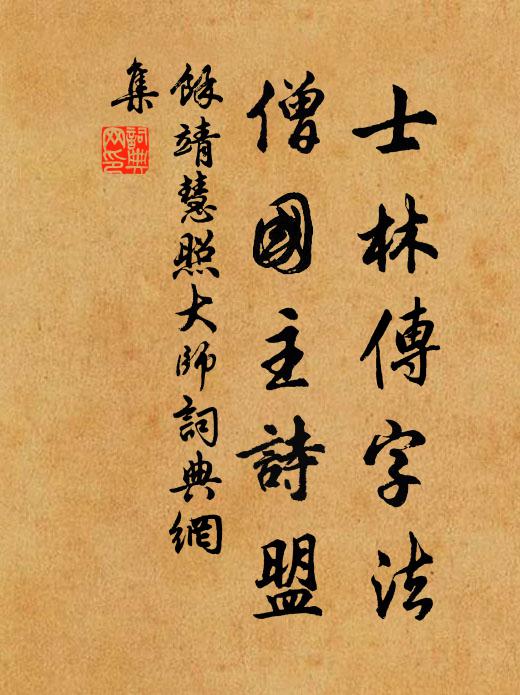 士林傳字法
僧國主詩盟
餘靖慧照大師詞典網
集
詞典
网印